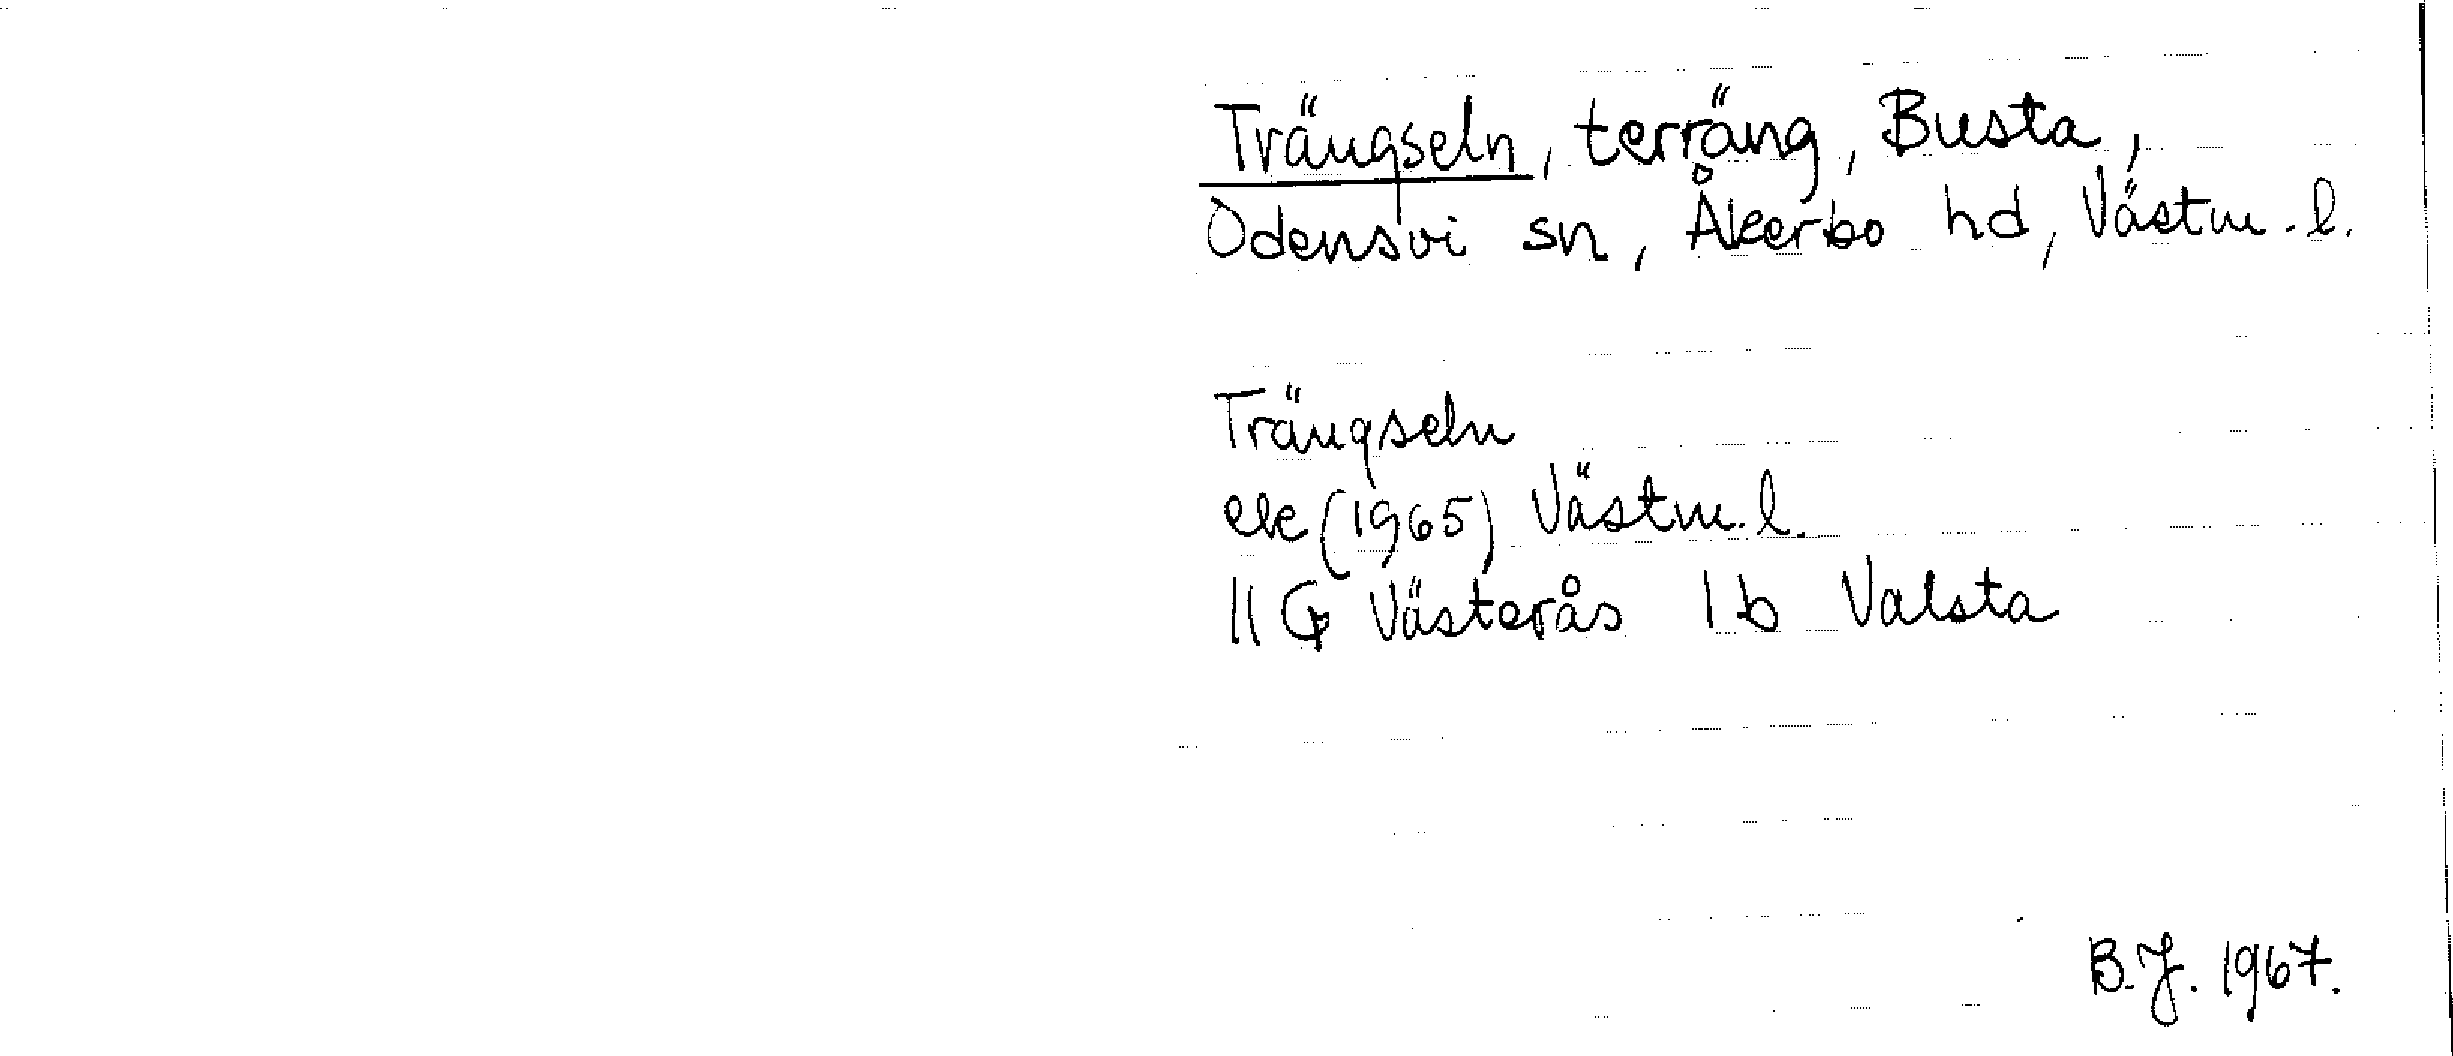 Trängseln, terräng, Busta,
Odensvi sn, Åkerbo hd, Västm. l.
Trängseln
ek (1965) Västm. l.
11 G Västerås 1 b Valsta
B.J. 1967.